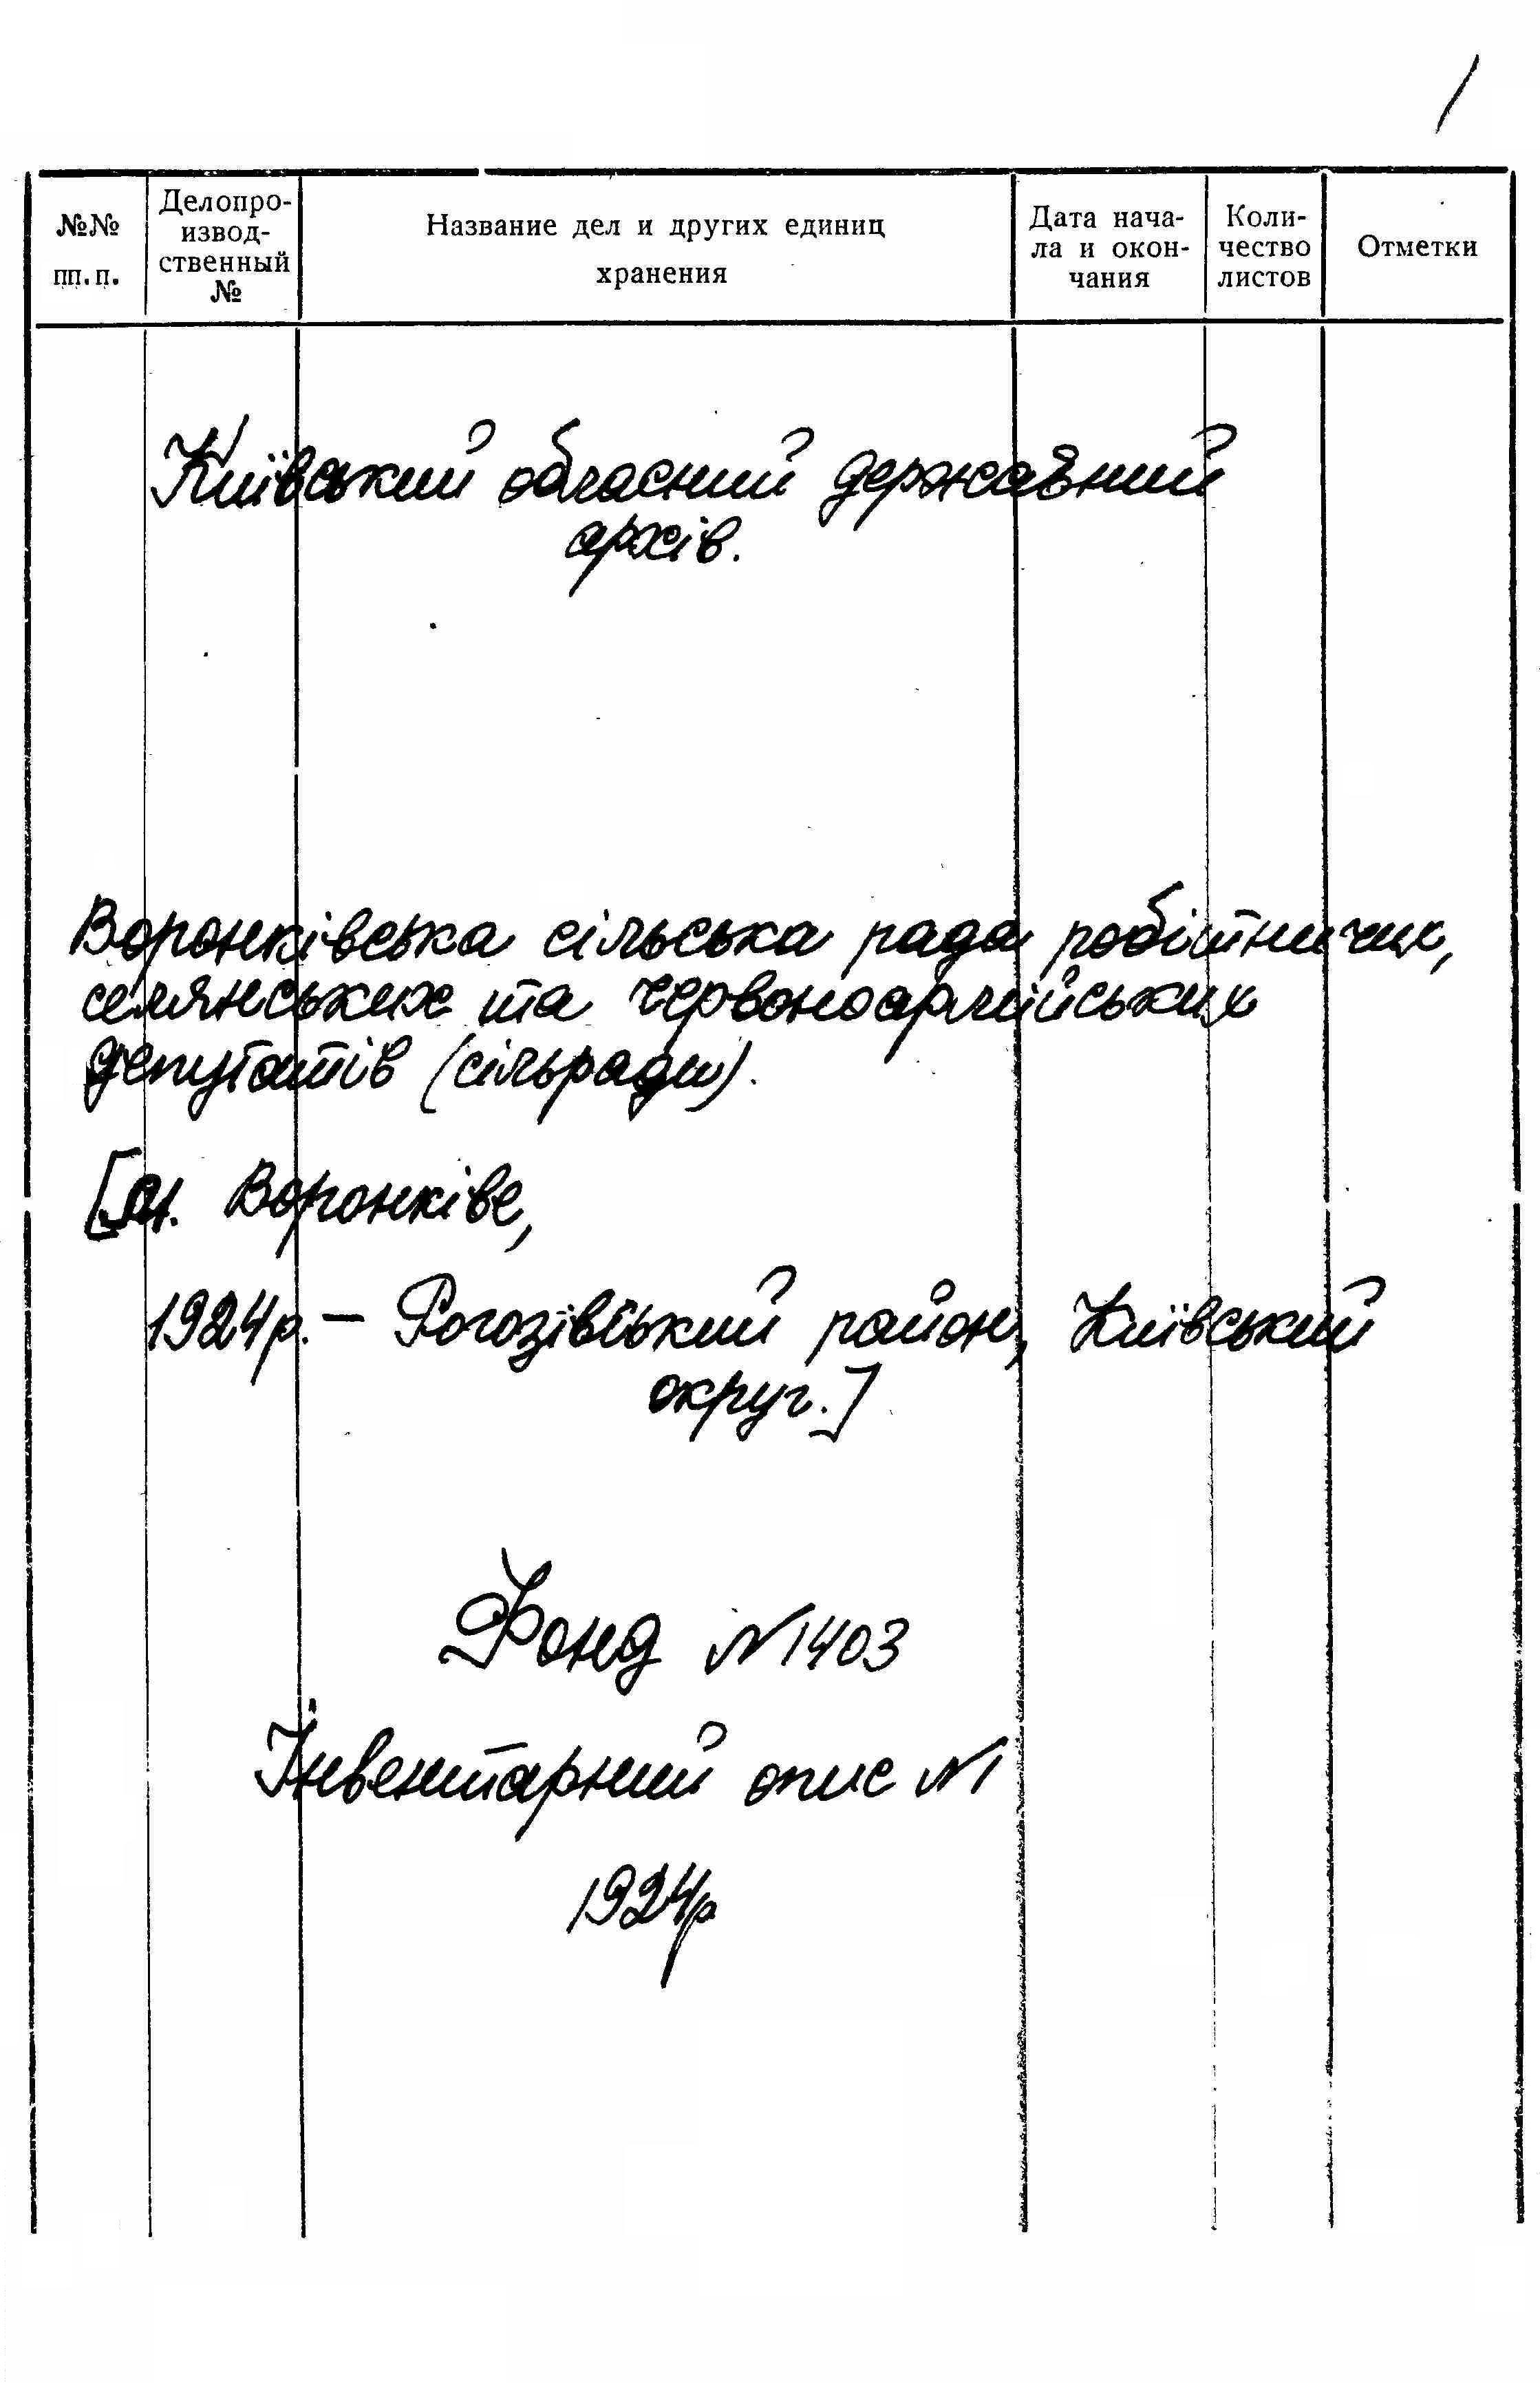 1
№№ пп. п.
Делопро-
извод-
ственный
№
Название дел и других единиц
хранения
Дата нача-
ла и окон-
чания
Коли-
чество
листов
Отметки
Київський обласний державний
архів.
Воронківська сільська рада робітничих,
селянських та червоноармійських
депутатів (сільради).
[м. Воронківе,
1924р. – Рогозівський район, Київський
округ.]
Фонд №1403
Інвентарний опис №1
1924р